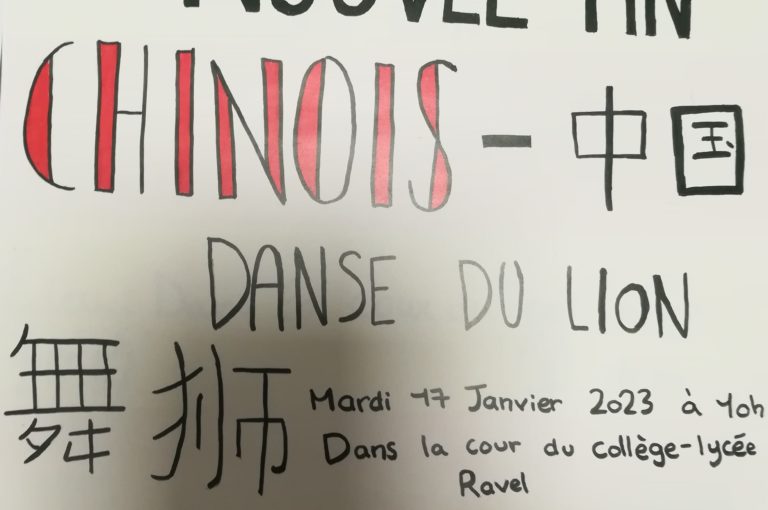 NOUVEL AN
CHINOIS - 中国
DANSE DU LION
舞狮
Mardi 17 Janvier 2023 à 10h
Dans la cour du collège-lycée
Ravel